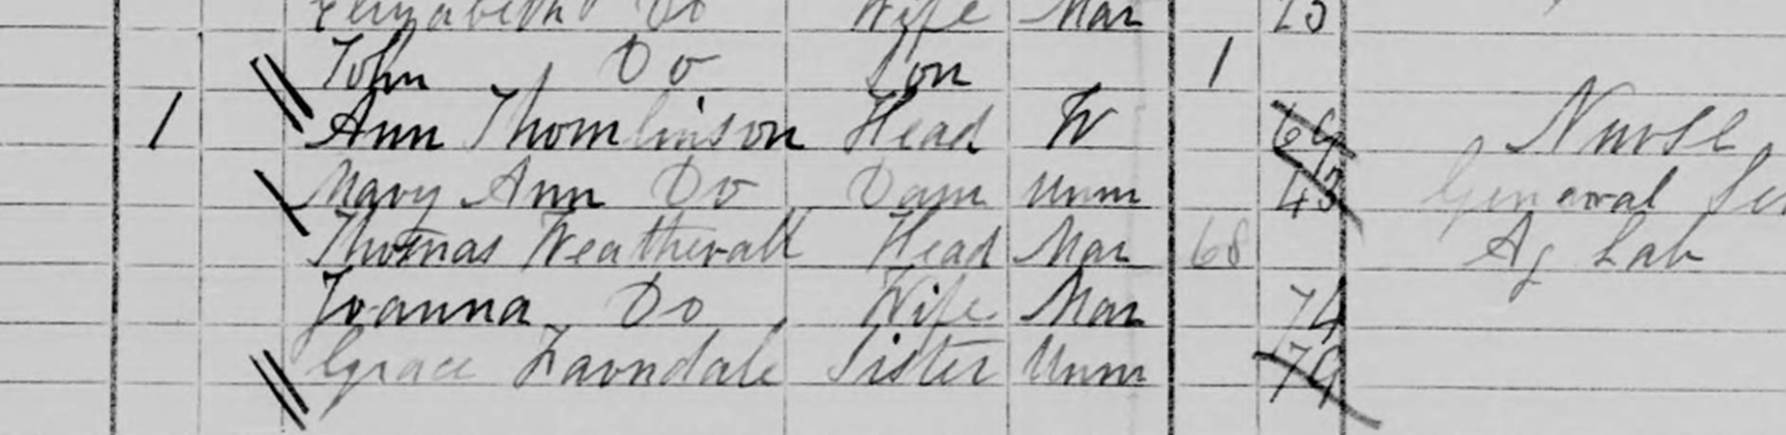 Elizabeth Do Wife Mar 25
John Do Son 1
1 Ann Thomlinson Head W 69 Nurse
Mary Ann Do Daur Unm 43 General
Thomas Weatherall Head Mar 68 Ag Lab
Joanna Do Wife Mar 74
Grace Do Sister Unm 79